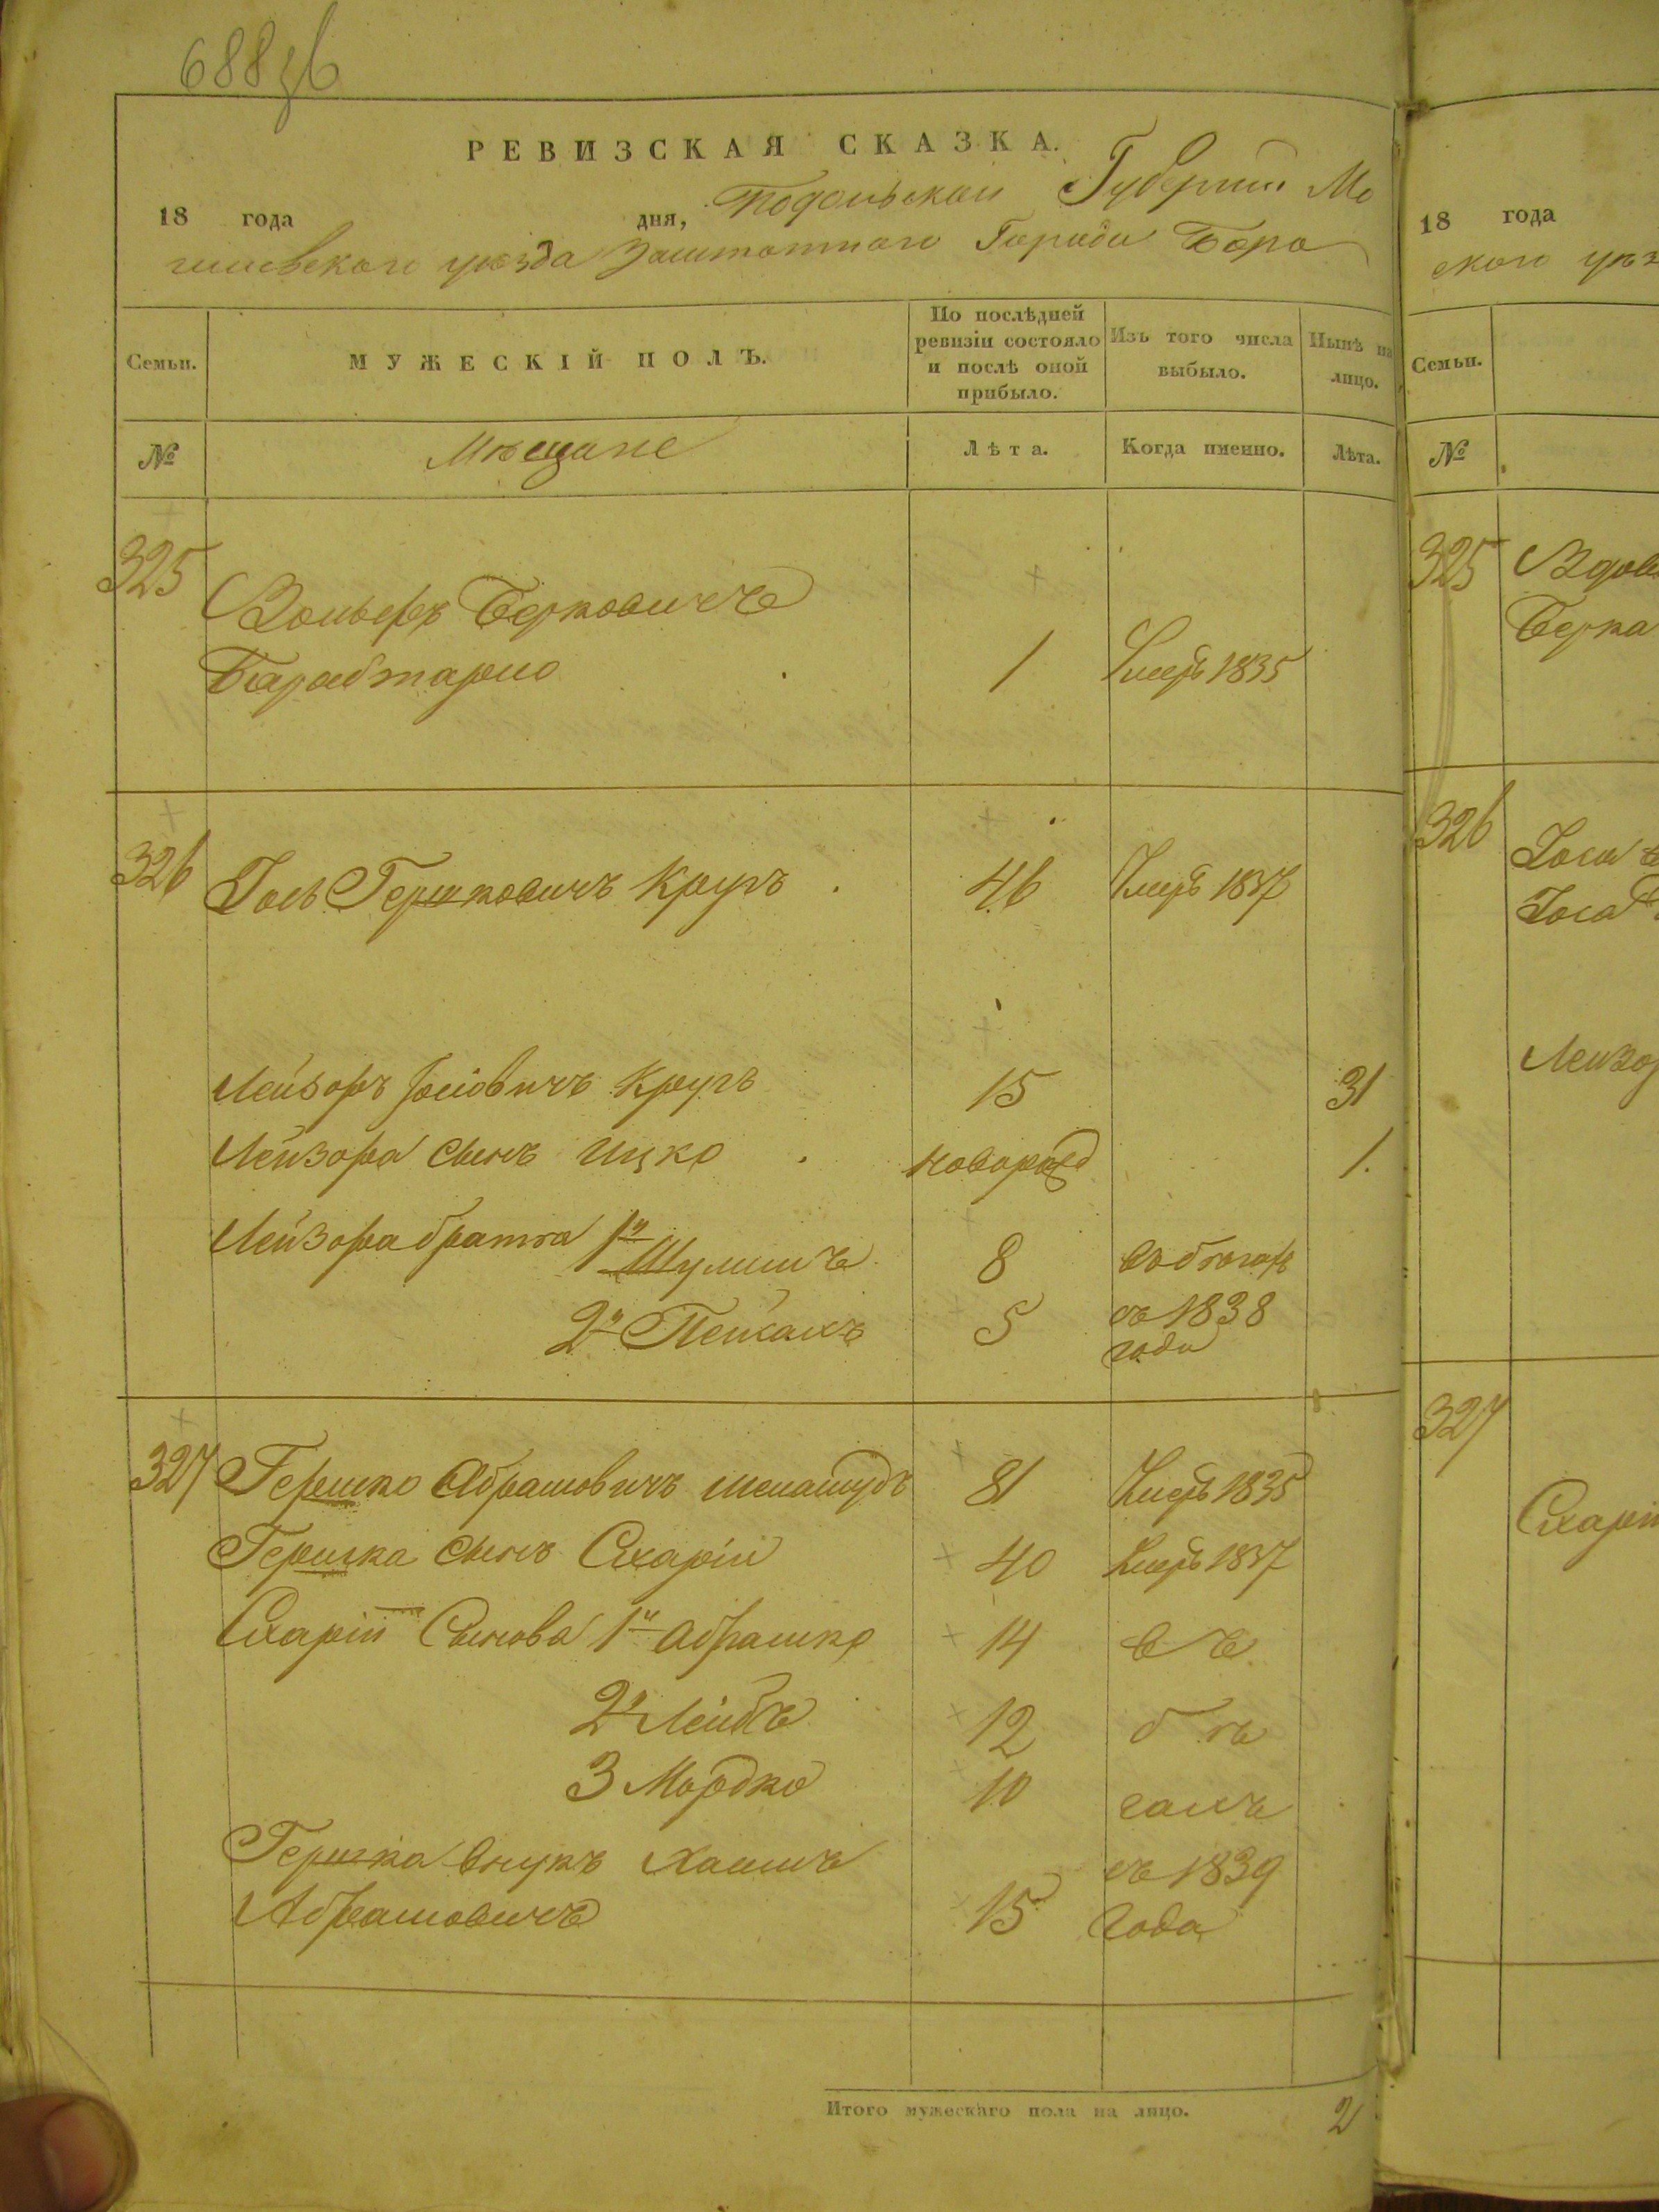 688
РЕВИЗСКАЯ СКАЗКА.
18 года дня, Подольской Губернии Мо
гилевскаго уѣзда Заштатнаго Города Бара
Семьи.
МУЖЕСКІЙ ПОЛЪ.
По послѣдней ревизіи состояло и послѣ оной прибыло.
Изъ того числа выбыло.
Нынѣ на лицо.
№
Мѣщане
Лѣта.
Когда именно.
Лѣта.
325 Вольфъ Берковичъ
1 Умеръ 1835
326 Іось Гершковичъ Кругъ 46 Умеръ 1837
Лейзоръ Іосіовичъ Кругъ 15 31
Лейзора сынъ Ицко новорожд 1.
Лейзора братья 1й Шулимъ 8 въ бѣгахъ
2й Пейсахъ 5 съ 1838
года
327 Гершко Абрамовичъ 81 Умеръ 1835
Гершка сынъ Сахарія 40 Умеръ 1837
Сахаріи Сыновья 1й Абрашко 14 въ
2й Лейбъ 12 бѣ
3 Мордко 10 гахъ
Гершка внукъ Хаимъ съ 1839
Абрамовичъ 15 года
Итого мужескаго пола на лицо. 2
18 года
скаго уѣз
Семьи.
№
325 Вдов
Берка
326 Іося
Іоса
Лейзор
327
Сахарі